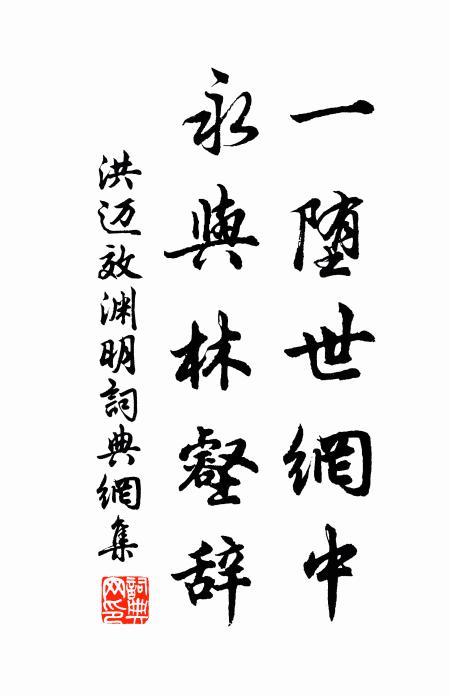 一堕世網中
永與林壑辞
洪迈效渊明詞典網集
詞典网印